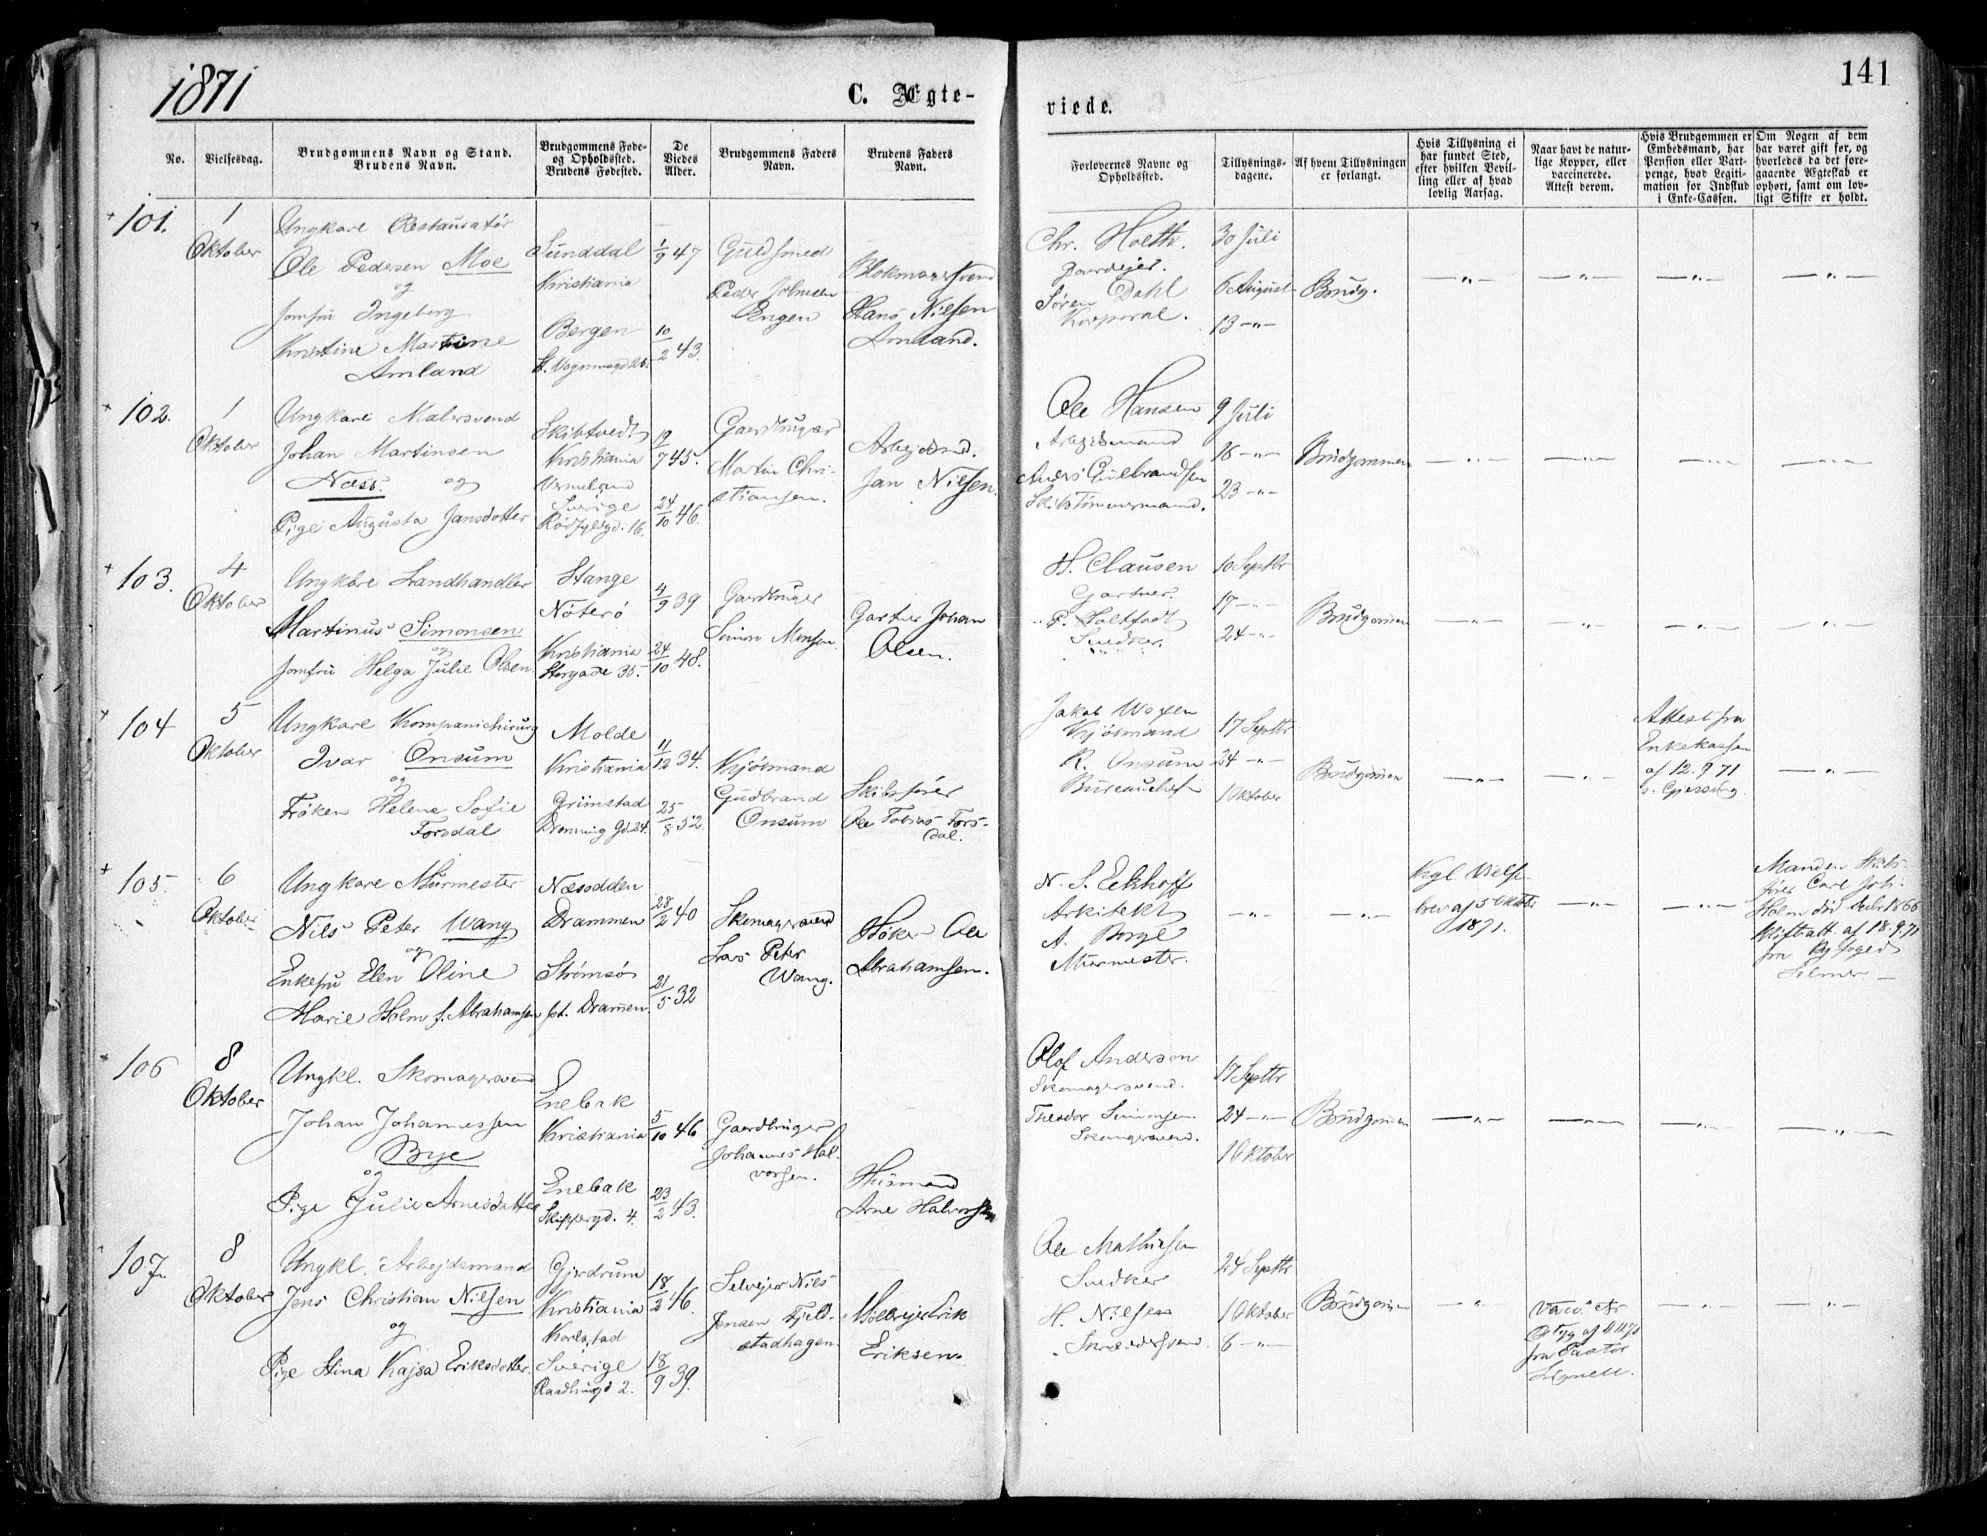 1871
C. Ægte-
viede.
141
No.
Vielsesdag.
Brudgommens Navn og Stand.
Brudens Navn.
Brudgommens Føde-
og Opholdssted.
Brudens Fødested.
De
Viedes
Alder.
Brudgommens Faders
Navn.
Brudens Faders
Navn.
Forlovernes Navne og
Opholdssted.
Tillysnings-
dagene.
Af hvem Tillysningen
er forlangt.
Hvis Tillysning ei
har fundet Sted,
efter hvilken Bevil-
ling eller af hvad
lovlig Aarsag.
Naar havt de natur-
lige Kopper, eller
vaccinerede.
Attest derom.
Hvis Brudgommen er
Embedsmand, har
Pension eller Vart-
penge, hvad Legiti-
mation for Indskud
i Enke-Cassen.
Om Nogen af dem
har været gift før, og
hvorledes da det fore-
gaaende Ægteskab er
ophørt, samt om lov-
ligt Skifte er holdt.
101.
1
Oktober
Ungkare Restauratør
Ole Pedersen Moe
og
Jomfru Ingeborg
Kristine Martine
Amland
Sunddal
Kristiania
Bergen
1/9 47
10/2 43.
Guldsmed
Peder Johnsen
Engen
Hans Nilsen
Amland.
Chr. Holth.
Gaardejer.
Søren Dahl
Korporal.
30 Juli
6 August
13 -"-
Brudg.
-"-
-"-
-"-
-"-
102.
1
Oktober
Ungkare Malersvend
Johan Martinsen
Næss. og
Pige Augusta Jansdotter
Skibtvedt
Kristiania
Vermeland
Sverige
Rødfyldgd. 16.
19/7 45.
24/10 46.
Gaardbruger
Martin Chri-
stiansen.
Arbejdsmd.
Jan Nilsen.
Ole Hansen
Arbejdsmand
Anders Gulbrandsen
Skibstømmermand.
9 Juli
16 -"-
23 -"-
Brudgommen
-"-
-"-
-"-
-"-
103.
4
Oktober
Ungkare Landhandler
Martinus Simonsen
og
Jomfru Helga Julie Olsen
Stange
Nøterø
Kristiania
Storgade 35.
4/9 39
24/10 48.
Gaardbruger
Simon Monsen.
Gartner Johan
Olsen.
H. Clausen
Gartner.
P. Holtfodt
Snedker.
10 Septbr
17 -"-
24 -"-
Brudgommen
-"-
-"-
-"-
-"-
104
5
Oktober
Ungkare Kompanichirurg
Ivar Onsum
og
Frøken Helene Sofie
Forsdal
Molde
Kristiania
Grimstad
Dronning Gd. 24.
11/12 34.
25/8 52
Kjøbmand
Gudbrand
Onsum
Skibsfører
Ole Tobias Fors-
dal.
Jakob Woxen
Kjøbmand
R. Onsum
Bureauchef
17 Septbr
24 -"-
1 Oktober
Brudgommen
-"-
-"-
Attest fra
Enkekassen
af 12.9.71
-"-
105.
6
Oktober
Ungkare Murmester
Nils Peter Wang
og
Enkefru Elen Oline
Marie Holm f. Abrahamsen
Næsodden
Drammen
Strømsø
Drammen.
28/2 40
21/5 32
Skomagersvend
Lars Peter
Wang.
Høker Ole
Abrahamsen.
N. S. Eckhoff
Arkitekt
A. Borge
Murmester.
-"-
-"-
Kgl Vielse
brev af 5 Oktbr
1871.
-"-
-"-
Manden Skibs-
fører Carl Joh.
Holm død 1866
Skifteatt. af 18.9.71
fra Byfoged
Selmer.
106
8
Oktober
Ungkl. Skomagersvend
Johan Johannessen
Bye
og
Pige Julie Arnesdatter
Enebak
Kristiania
Enebak
Skippergd. 4.
5/10 46
23/2 43.
Gaardbruger
Johannes Hal-
vorsen.
Husmand
Arne Halvorsen
Olof Anderson
Skomagersvend.
Theodor Simonsen
Skomagersvend.
17 Septbr
24 -"-
1 Oktober
Brudgommen
-"-
-"-
-"-
-"-
107.
8
Oktober
Ungkl. Arbejdsmand
Jens Christian Nilsen
og
Pige Stina Kajsa Eriksdotter.
Gjerdrum
Kristiania
Karlstad
Sverige
Raadhusgd 2.
18/2 46.
18/9 39.
Selvejer Nils
Jensen Fjeld-
stadhagen
Erik
Eriksen.
Ole Mathisen
Snedker
H. Nilsen
Skræddersvend.
24 Septbr
1 Oktober
8 -"-
Brudgommen
-"-
fra Pastor
-"-
-"-